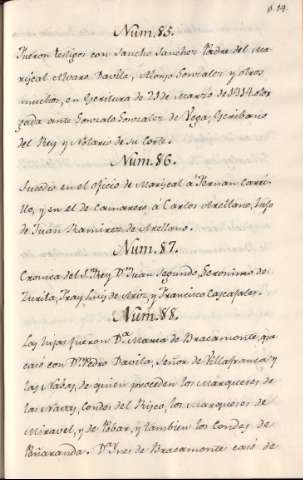 6.14.
Núm. 85.
Fueron testigos con Sancho Sanchez Padre del Ma-
riscal Alvaro Davila, Alonso Gonzalez y otros
muchos, en Escritura de 21 de Marzo de 1414 otor
gada ante Gonzalo Gonzalez de Vega, Escribano
del Rey y Notario de su Corte.
Núm. 86.
Sucedio en el oficio de Mariscal á Hernan Carri-
llo, y en el de Camarero á Carlos Arellano, Hijo
de Juan Ramirez de Arellano.
Núm. 87.
Cronica del S.r Rey D.n Juan Segundo, Geronimo de
Zurita, Fray Luis de Ariz, y Francisco Cascajales.
Núm. 88.
Los hijos fueron D.a Maria de Bracamonte, que
casó con D.n Pedro Davila, Señor de Villafranca y
las Návas, de quien proceden los Marqueses de
las Návas, Condes del Risco, los Marqueses de
Miravel, y de Pobar, y tambien los Condes de
Peñaranda. D.a Ines de Bracamonte casó de